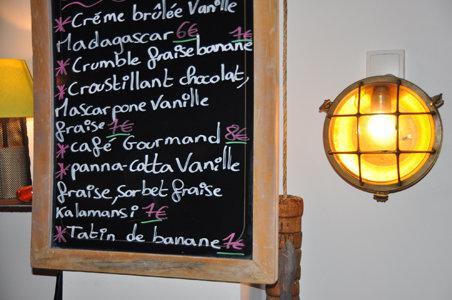 * Créme brûlée Vanille
Madagascar 6€
* Crumble fraise banane 7€
* Croustillant chocolat,
Mascarpone Vanille
fraise 7€
* café Gourmand 8€
* panna-cotta Vanille
fraise, Sorbet fraise
Kalamansi 7€
* Tatin de banane 7€